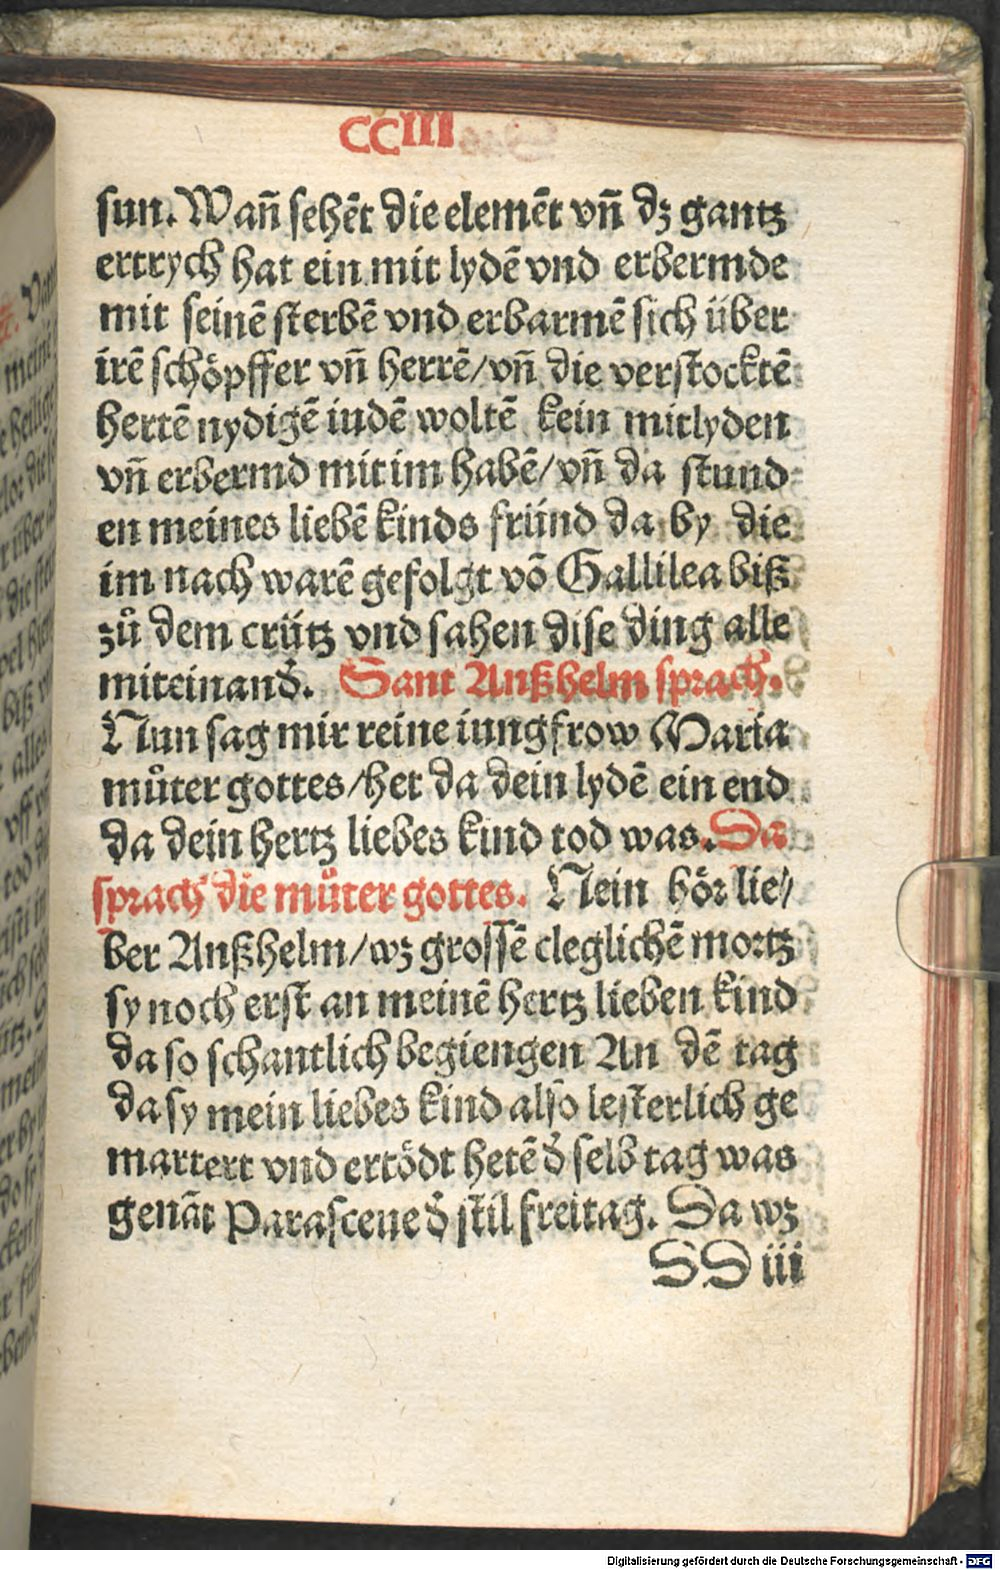 CCIII
sun. Wañ sehēt die elemēt vñ dz gantz
ertrych hat ein mit lydē vnd erbermde
mit seinē sterbē vnd erbarmē sich über
irē schöpffer vñ herrē/vñ die verstocktē
hertē nydigē iudē woltē kein mitlyden
vñ erbermd mit im habē/vñ da stund
en meines liebē kinds fründ da by die
im nach warē gefolgt vō Gallilea biß
zů dem crütz vnd sahen dise ding alle
miteinand̕. Sant Anßhelm sprach.
Nun sag mir reine iungfrow Maria
můter gottes/het da dein lydē ein end
da dein hertz liebes kind tod was. Da
sprach die můter gottes. Nein hör lie/
ber Anßhelm/wz grossē cleglichē mortz
sy noch erst an meinē hertz lieben kind
da so schantlich begiengen An dē tag
da sy mein liebes kind also lesterlich ge
martert vnd ertödt hetē d̕ selb tag was
genāt Parasceue d̕ stil freitag. Da wz
SS iii
Digitalisierung gefördert durch die Deutsche Forschungsgemeinschaft - DFG